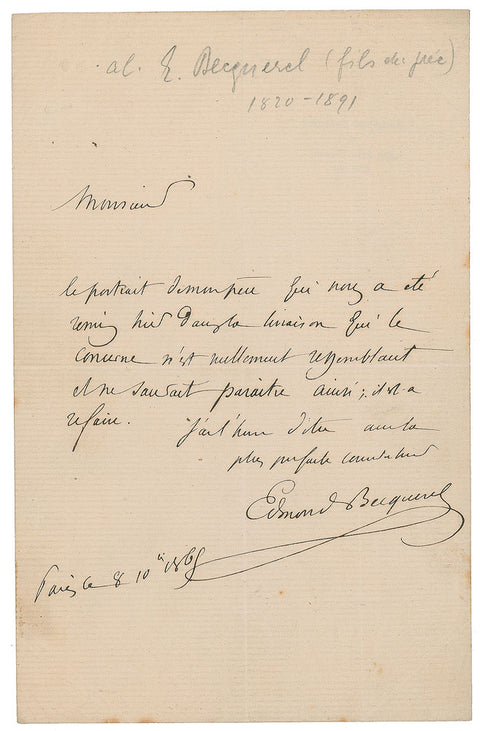 al. E. Becquerel (fils du préc)
1820-1891
Monsieur
le portrait de mon père qui nous a été
remis hier dans la livraison qui le
concerne n'est nullement ressemblant
et ne saurait paraître ainsi; il est a
refaire. J'ai l'honr d'être avec la
plus parfaite considération
Edmond Becquerel
Paris le 8 10